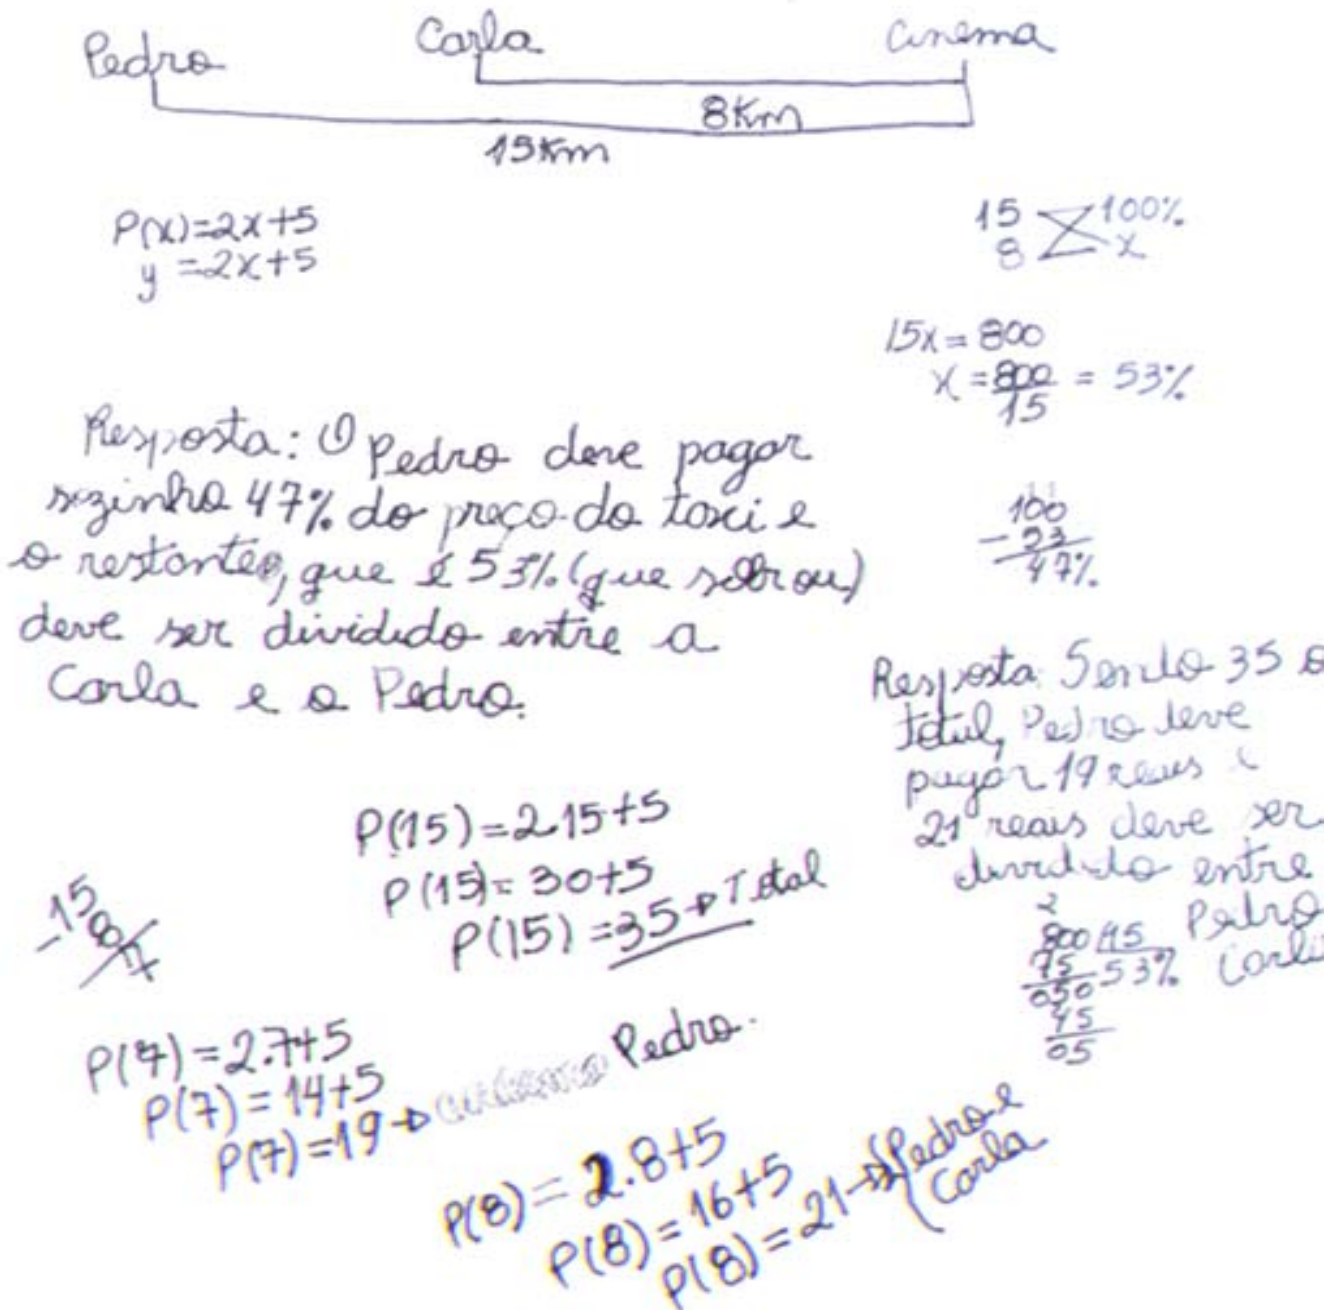 Pedro
Carla
Cinema
8Km
15Km
P(x)=2x+5
y=2x+5
15 100%
8 x
15x=800
x=800/15=53%
100
-53
47%
Resposta: O Pedro deve pagar
sozinho 47% do preço do taxi e
o restante, que é 53% (que sobrou)
deve ser dividido entre a
Carla e o Pedro.
Resposta: Sendo 35 o
total, Pedro deve
pagar 19 reais e
21 reais deve ser
dividido entre
Pedro
2
800 15
75 53%
050
45
05
P(15)=2.15+5
P(15)=30+5
P(15)=35→Total
-15
8
7
P(7)=2.7+5
P(7)=14+5
P(7)=19→ Pedro.
P(8)=2.8+5
P(8)=16+5
P(8)=21→{Pedro e
Carla